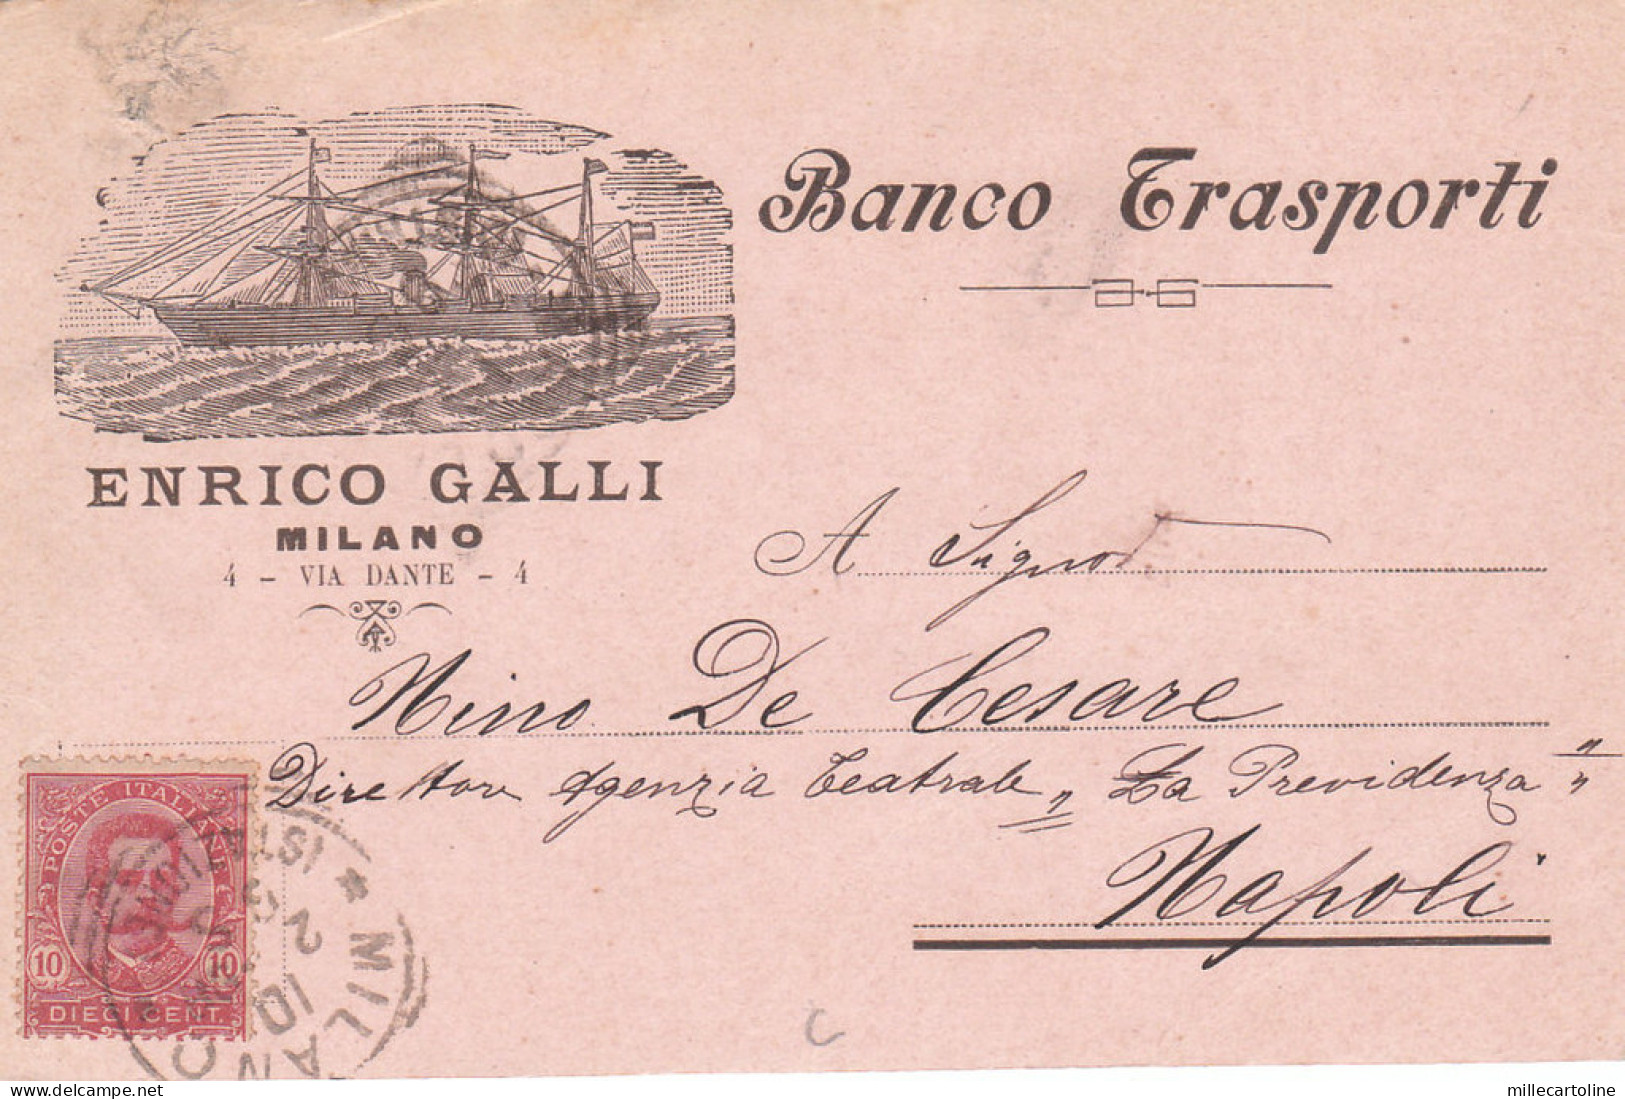 Banco Trasporti
ENRICO GALLI
MILANO
4 - VIA DANTE - 4
A Signor
Nino De Cesare
Direttore Agenzia Teatrale "La Previdenza"
Napoli
POSTE ITALIANE
10 10
DIECI CENT.
* MILANO
millecartoline